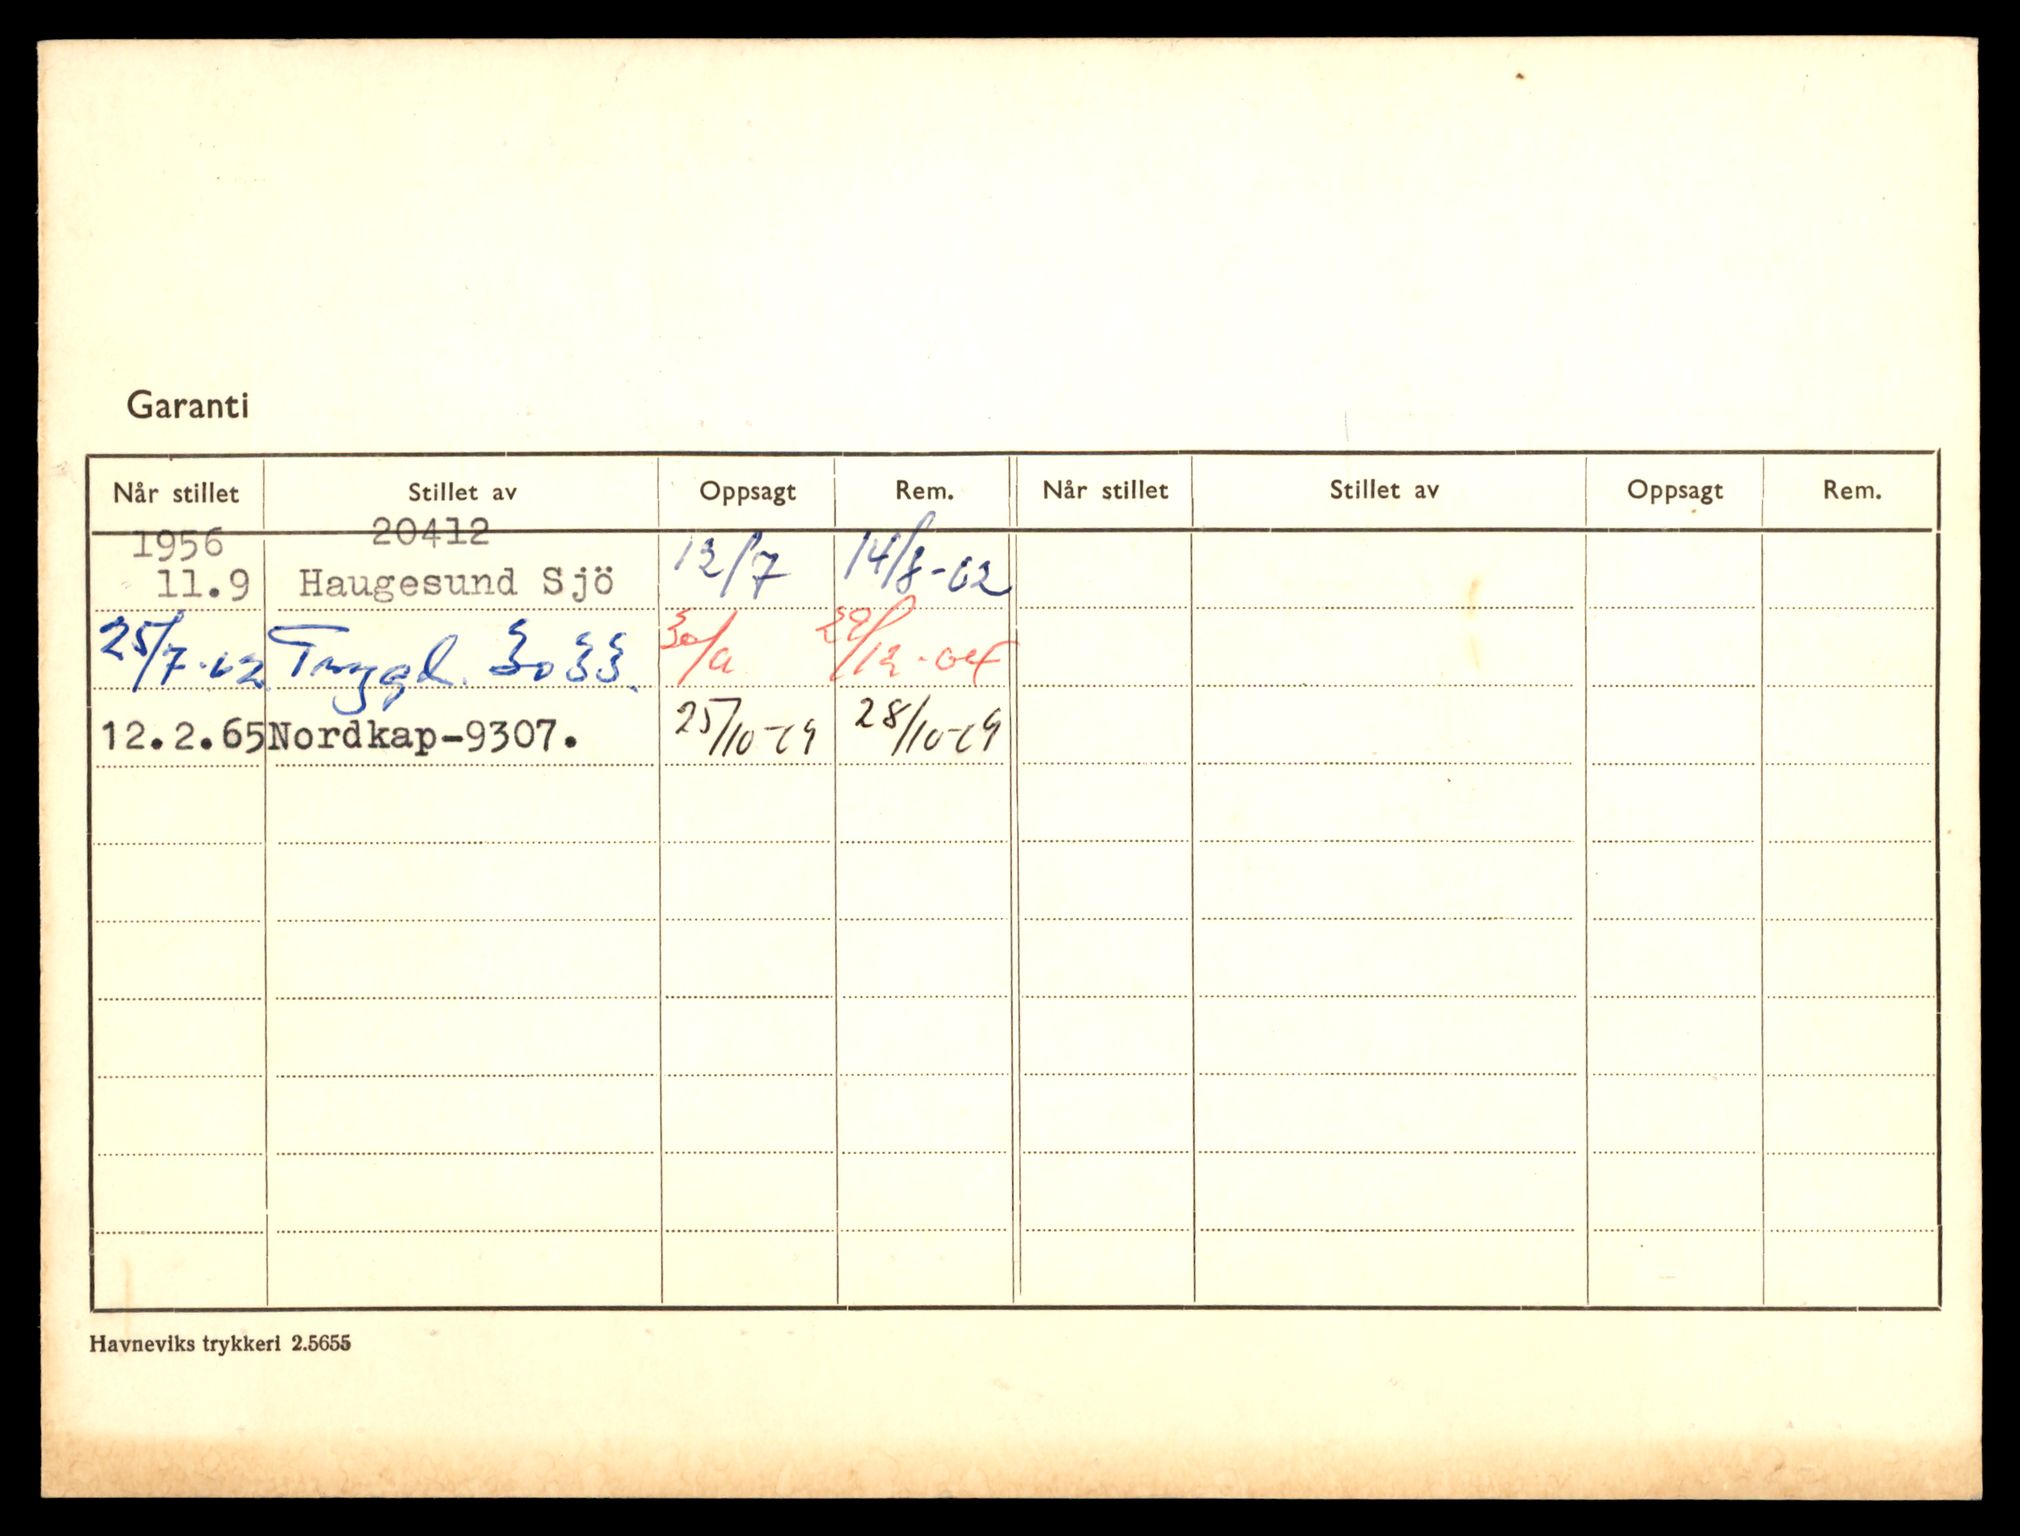 Garanti
Når stillet Stillet av Oppsagt Rem. Når stillet Stillet av Oppsagt Rem.
1956 20412
11.9 Haugesund Sjö 12/7 14/8-62
25/7-62 Trygd. 3033. 30/ 29/12-64
12.2.65 Nordkap-9307. 25/10-69 28/10-69
Havneviks trykkeri 2.5655